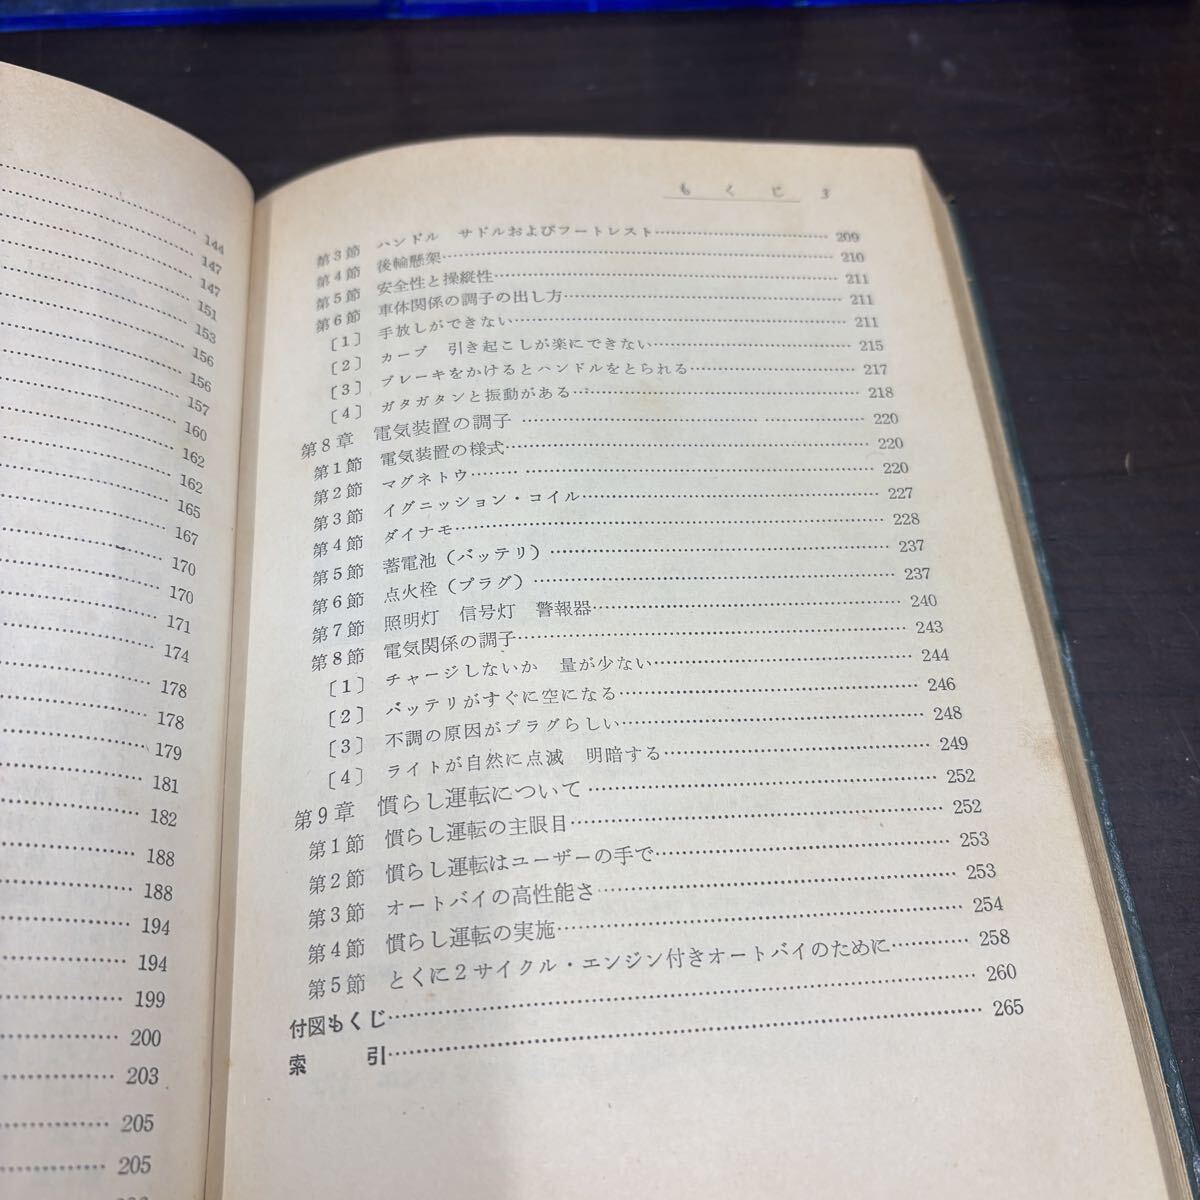 144
147
147
151
153
156
156
157
160
162
162
165
167
170
170
171
174
178
178
179
181
182
188
188
194
194
199
200
203
205
205
もくじ 3
第3節 ハンドル サドルおよびフートレスト…………209
第4節 後輪懸架…………210
第5節 安全性と操縦性…………211
第6節 車体関係の調子の出し方…………211
〔1〕 手放しができない…………211
〔2〕 カーブ 引き起こしが楽にできない…………215
〔3〕 ブレーキをかけるとハンドルをとられる…………217
〔4〕 ガタガタンと振動がある…………218
第8章 電気装置の調子…………220
第1節 電気装置の様式…………220
第2節 マグネトウ…………220
第3節 イグニッション・コイル…………227
第4節 ダイナモ…………228
第5節 蓄電池(バッテリ)…………237
第6節 点火栓(プラグ)…………237
第7節 照明灯 信号灯 警報器…………240
第8節 電気関係の調子…………243
〔1〕 チャージしないか 量が少ない…………244
〔2〕 バッテリがすぐに空になる…………246
〔3〕 不調の原因がプラグらしい…………248
〔4〕 ライトが自然に点滅 明暗する…………249
第9章 慣らし運転について…………252
第1節 慣らし運転の主眼目…………252
第2節 慣らし運転はユーザーの手で…………253
第3節 オートバイの高性能さ…………253
第4節 慣らし運転の実施…………254
第5節 とくに2サイクル・エンジン付きオートバイのために…………258
付図もくじ…………260
索 引…………265